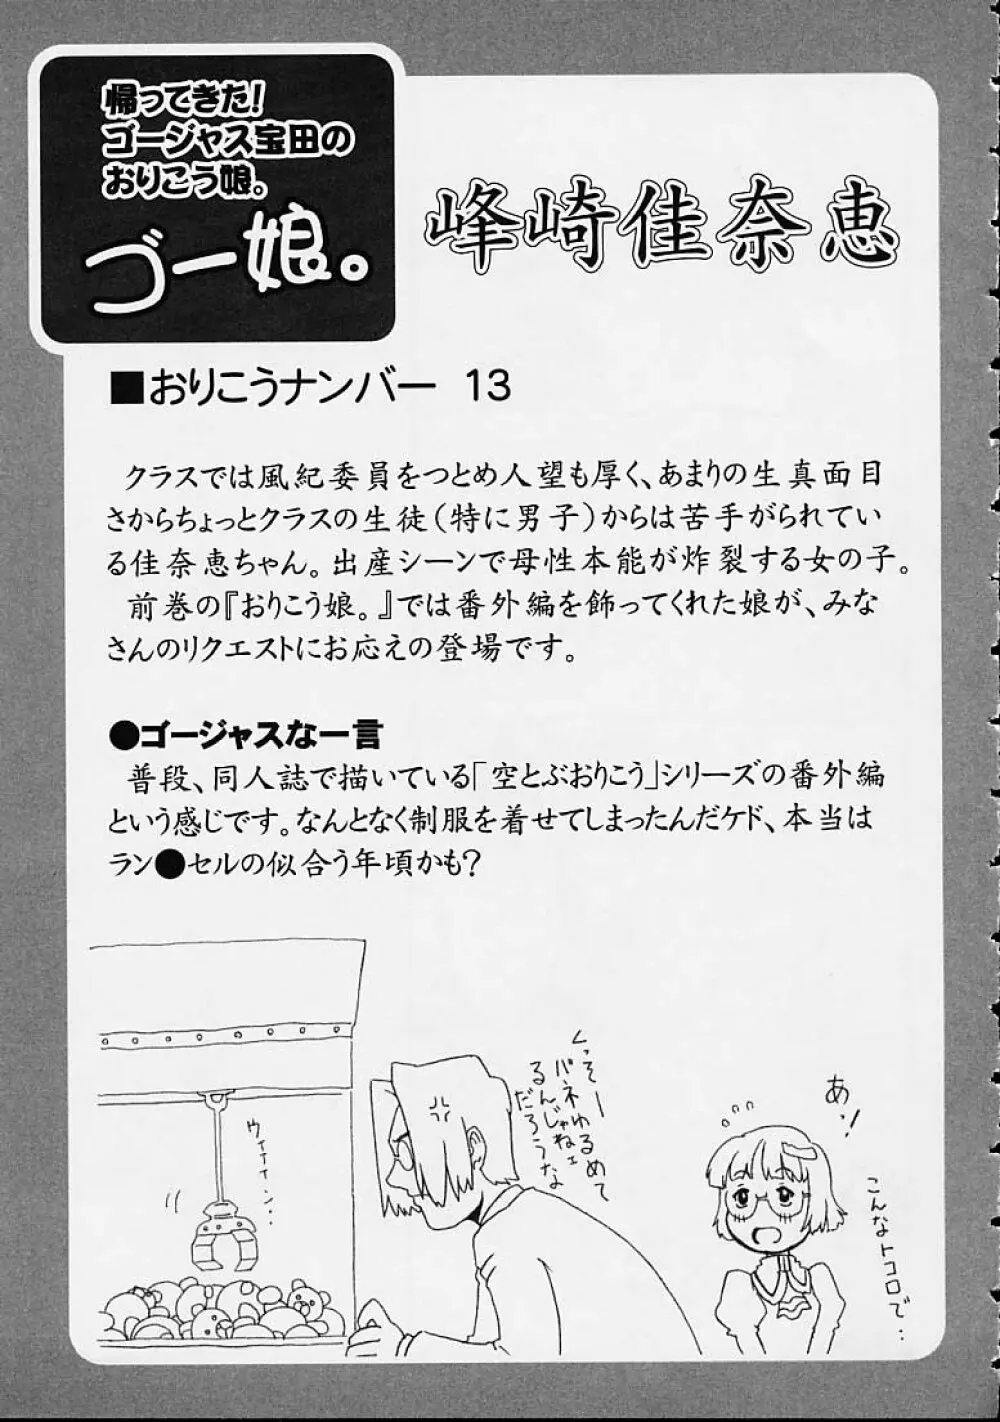 帰ってきた!
ゴージャス宝田の
おりこう娘。
ゴー娘。
峰崎佳奈恵
■おりこうナンバー 13
クラスでは風紀委員をつとめ人望も厚く、あまりの生真面目
さからちょっとクラスの生徒(特に男子)からは苦手がられてい
る佳奈恵ちゃん。出産シーンで母性本能が炸裂する女の子。
前巻の『おりこう娘。』では番外編を飾ってくれた娘が、みな
さんのリクエストにお応えの登場です。
●ゴージャスな一言
普段、同人誌で描いている「空とぶおりこう」シリーズの番外編
という感じです。なんとなく制服を着せてしまったんだケド、本当は
ラン●セルの似合う年頃かも?
くっそー
バネゆるめて
るんじゃねェ
だろうな
ウイイイン・・・
あっ!
こんなトコロで・・